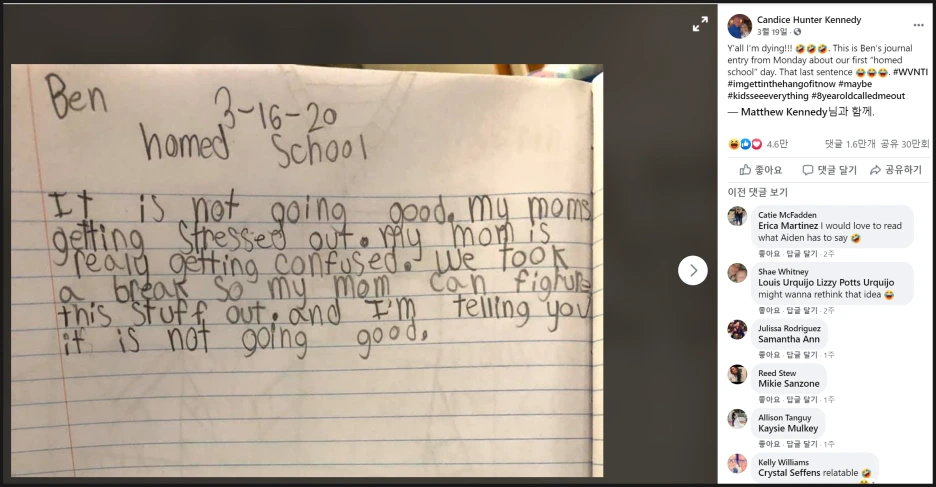 Ben
3-16-20
homed School
It is not going good. my moms
getting stressed out. My mom is
realy getting confused. we took
a break so my mom can figure
this stuff out. and I'm telling you
it is not going good.
Candice Hunter Kennedy
3월 19일 ·
Y'all I'm dying!!! 🤣🤣🤣. This is Ben's journal
entry from Monday about our first "homed
school" day. That last sentence 😂😂😂. #WVNTI
#imgettinthehangofitnow #maybe
#kidsseeeverything #8yearoldcalledmeout
— Matthew Kennedy님과 함께.
4.6만 댓글 1.6만개 공유 30만회
좋아요 댓글 달기 공유하기
이전 댓글 보기
Catie McFadden
Erica Martinez I would love to read
what Aiden has to say 🤣
좋아요 · 답글 달기 · 2주
Shae Whitney
Louis Urquijo Lizzy Potts Urquijo
might wanna rethink that idea 😂
좋아요 · 답글 달기 · 2주
Julissa Rodriguez
Samantha Ann
좋아요 · 답글 달기 · 1주
Reed Stew
Mikie Sanzone
좋아요 · 답글 달기 · 1주
Allison Tanguy
Kaysie Mulkey
좋아요 · 답글 달기 · 1주
Kelly Williams
Crystal Seffens relatable 🤣